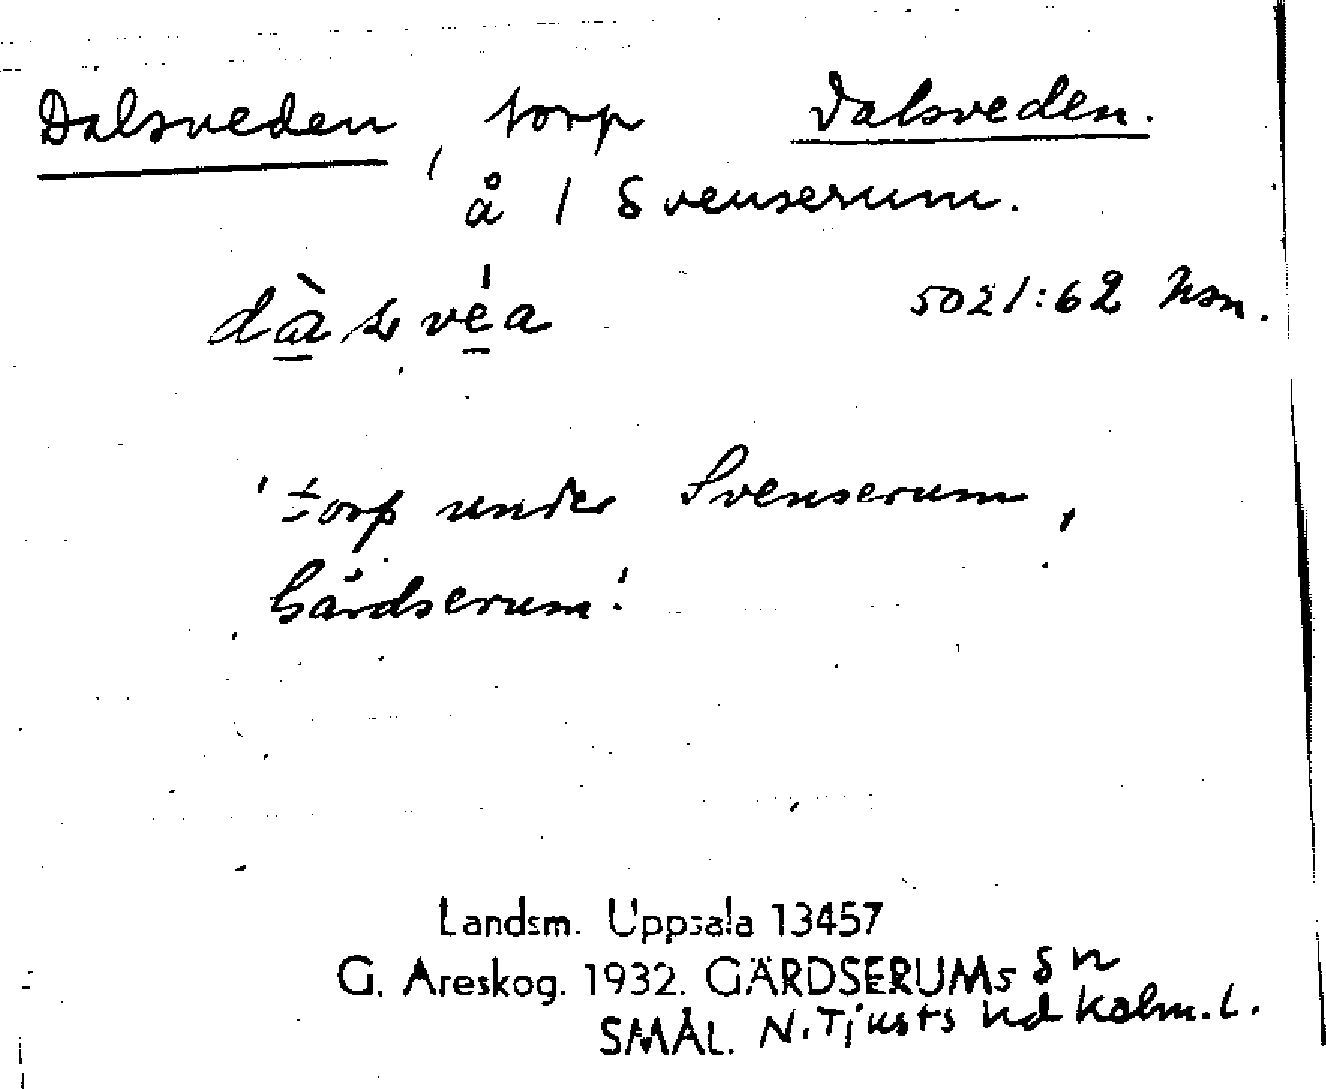 Dalsveden, torp Dalsveden.
å 1 Svenserum.
5021:62 Nsn.
'torp under Svenserum,
Gärdserum'.
Landsm. Uppsala 13457
G. Areskog. 1932. GÄRDSERUMs sn
SMÅL. N. Tjusts hd Kalm. l.